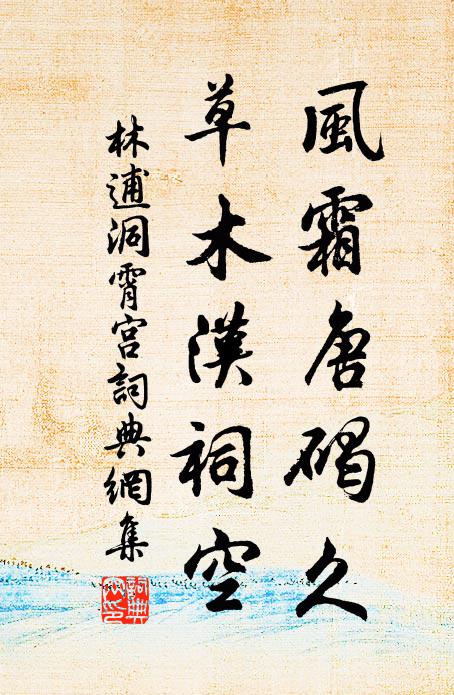 風霜唐碣久
草木漢祠空
林逋洞霄宮詞典網集